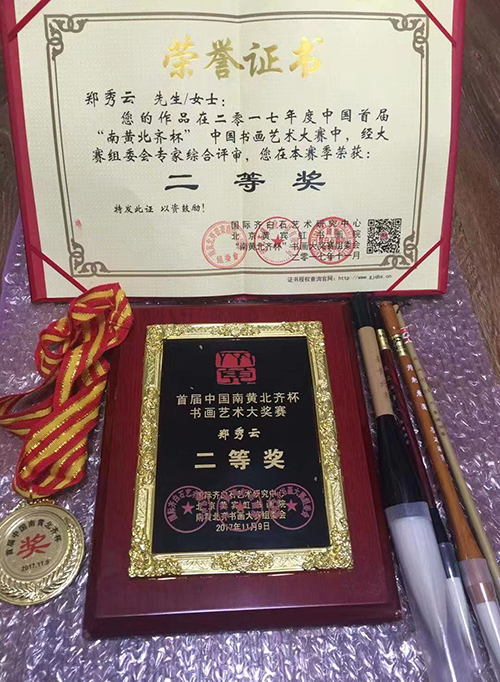 荣誉证书
郑秀云 先生/女士：
您的作品在二零一七年度中国首届
“南黄北齐杯” 中国书画艺术大赛中，经大
赛组委会专家综合评审，您在本赛季荣获：
二等奖
特发此证 以资鼓励！
国际齐白石艺术研究中心
北京黄宾虹书画院
“南黄北齐杯”书画大奖赛组委会
二零一七年十一月
证书授权查询官网：http://www.gjqbs.cn
首届中国南黄北齐杯
书画艺术大奖赛
郑秀云
二等奖
国际齐白石艺术研究中心
北京黄宾虹书画院
南黄北齐书画大赛组委会
2017年11月9日
首届中国南黄北齐杯
奖
2017.11.9